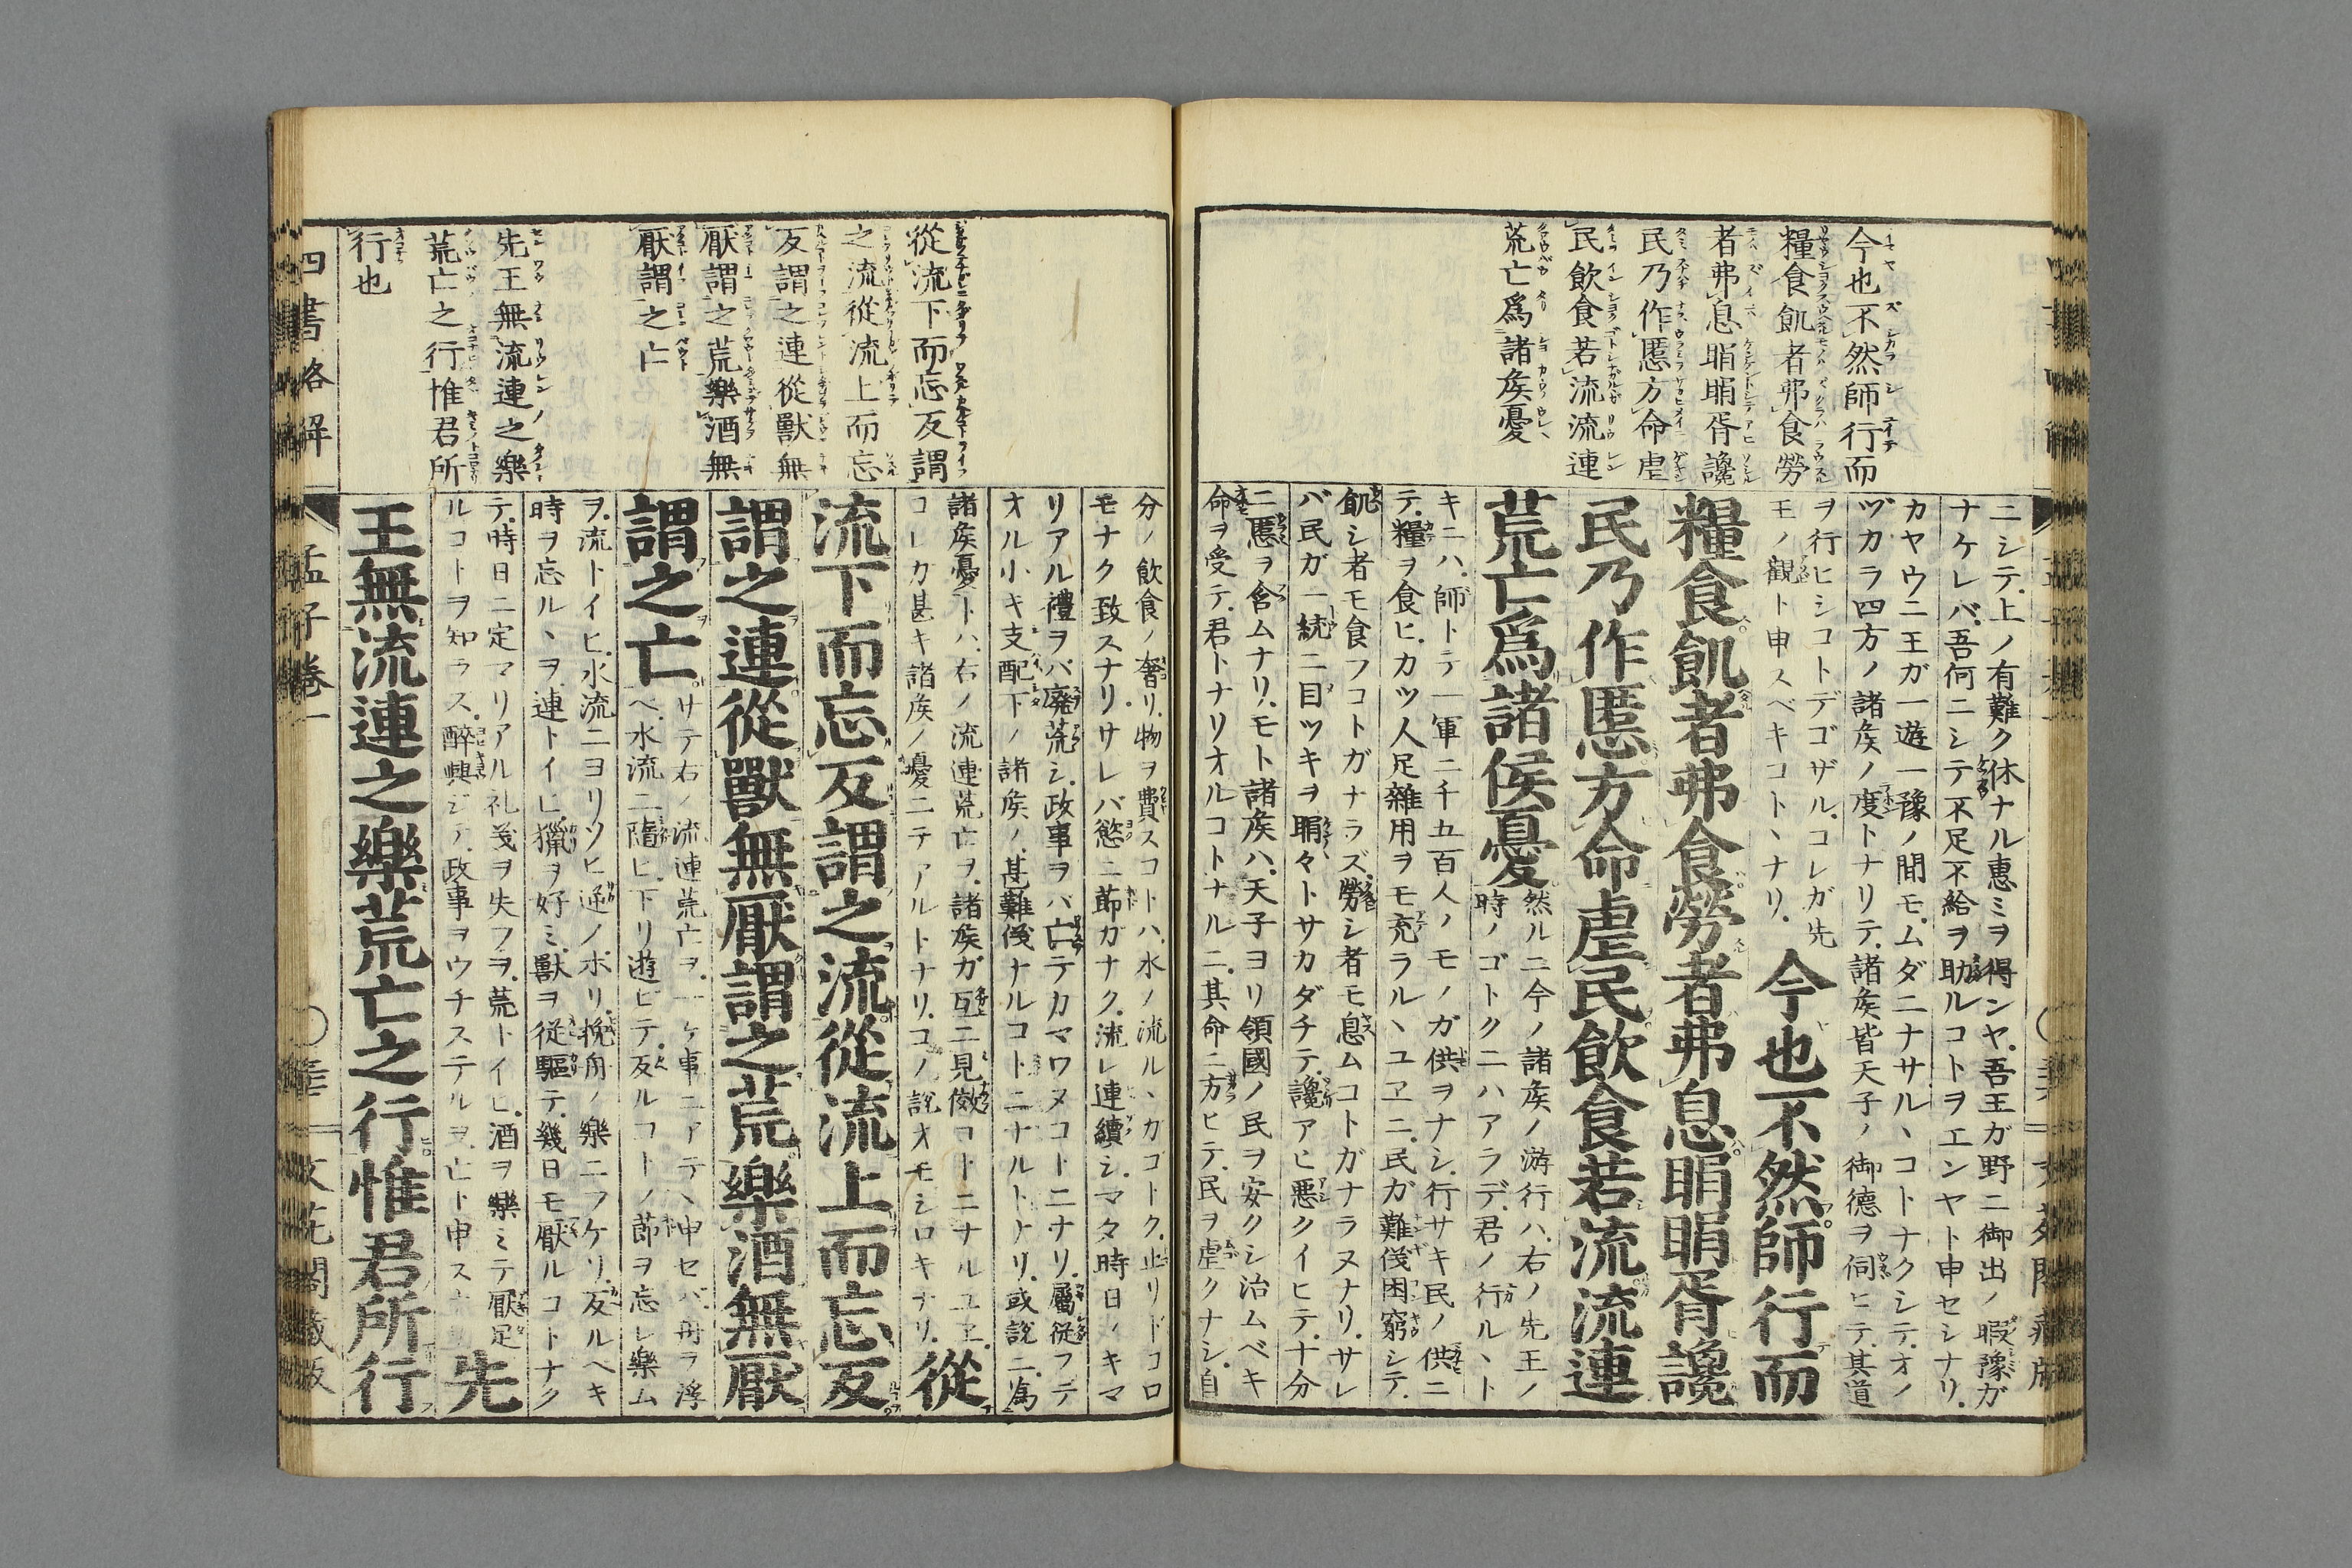 今也不然師行而
糧食飢者弗食勞
者弗息睊睊胥讒
民乃作慝方命虐
民飲食若流流連
荒亡爲諸矦憂
ニシテ上ノ有難ク休ナル惠ミヲ得ンヤ吾王ガ野ニ御出ノ暇豫ガ
ナケレバ吾何ニシテ不足不給ヲ助ルコトヲエンヤト申セシナリ
カヤウニ王ガ一遊一豫ノ間モムダニナサルヽコトナクシテオノ
ヅカラ四方ノ諸矦ノ度トナリテ諸矦皆天子ノ御德ヲ伺ヒテ其道
ヲ行ヒシコトデゴザルコレガ先
王ノ觀ト申スベキコトヽナリ
今也不然師行而
糧食飢者弗食勞者弗息睊睊胥讒
民乃作慝方命虐民飲食若流流連
荒亡爲諸侯憂
然ルニ今ノ諸矦ノ游行ハ右ノ先王ノ
時ノゴトクニハアラデ君ノ行ルヽト
キニハ師トテ一軍二千五百人ノモノガ供ヲナシ行サキ民ノ供ニ
テ糧ヲ食ヒカツ人足雜用ヲモ充ラルヽユヱニ民ガ難儀困窮シテ
飢シ者モ食フコトガナラズ勞シ者モ息ムコトガナラヌナリサレ
バ民ガ一統ニ目ツキヲ睊々トサカダチテ讒アヒ惡クイヒテ十分
ニ慝ヲ含ムナリモト諸矦ハ天子ヨリ領國ノ民ヲ安クシ治ムベキ
命ヲ受テ君トナリオルコトナルニ其命ニ方ヒテ民ヲ虐クナシ自
從流下而忘反謂
之流從流上而忘
反謂之連從獸無
厭謂之荒樂酒無
厭謂之亡
先王無流連之樂
荒亡之行惟君所
行也
分ノ飲食ノ奢リ物ヲ費スコトハ水ノ流ルヽガゴトク止リドコロ
モナク致スナリサレバ慾ニ節ガナク流レ連續シマタ時日ノキマ
リアル禮ヲバ廢荒シ政事ヲバ亡テカマワヌコトニナリ屬從フテ
オル小キ支配下ノ諸矦ノ甚難儀ナルコトニナルトナリ或說ニ爲
諸矦憂トハ右ノ流連荒亡ヲ諸矦ガ互ニ見傚コトニナルユヱ
コレガ甚キ諸矦ノ憂ニテアルトナリコノ說オモシロキナリ
從
流下而忘反謂之流從流上而忘反
謂之連從獸無厭謂之荒樂酒無厭
謂之亡
サテ右ノ流連荒亡ヲ一ヶ事ニアテヽ申セバ舟ヲ浮
ベ水流ニ隨ヒ下リ遊ビテ反ルコトノ節ヲ忘レ樂ム
ヲ流トイヒ水流ニヨリソヒ逆ノホリ挽舟ノ樂ニフケリ反ルヘキ
時ヲ忘ルヽヲ連トイヒ獵ヲ好ミ獸ヲ從驅テ幾日モ厭ルコトナク
テ時日ニ定マリアル礼義ヲ失フヲ荒トイヒ酒ヲ樂ミテ厭足
ルコトヲ知ラス醉興ジテ政事ヲウチステルヲ亡ト申ス
先
王無流連之樂荒亡之行惟君所行
四書略解
孟子卷一
文花閣藏版